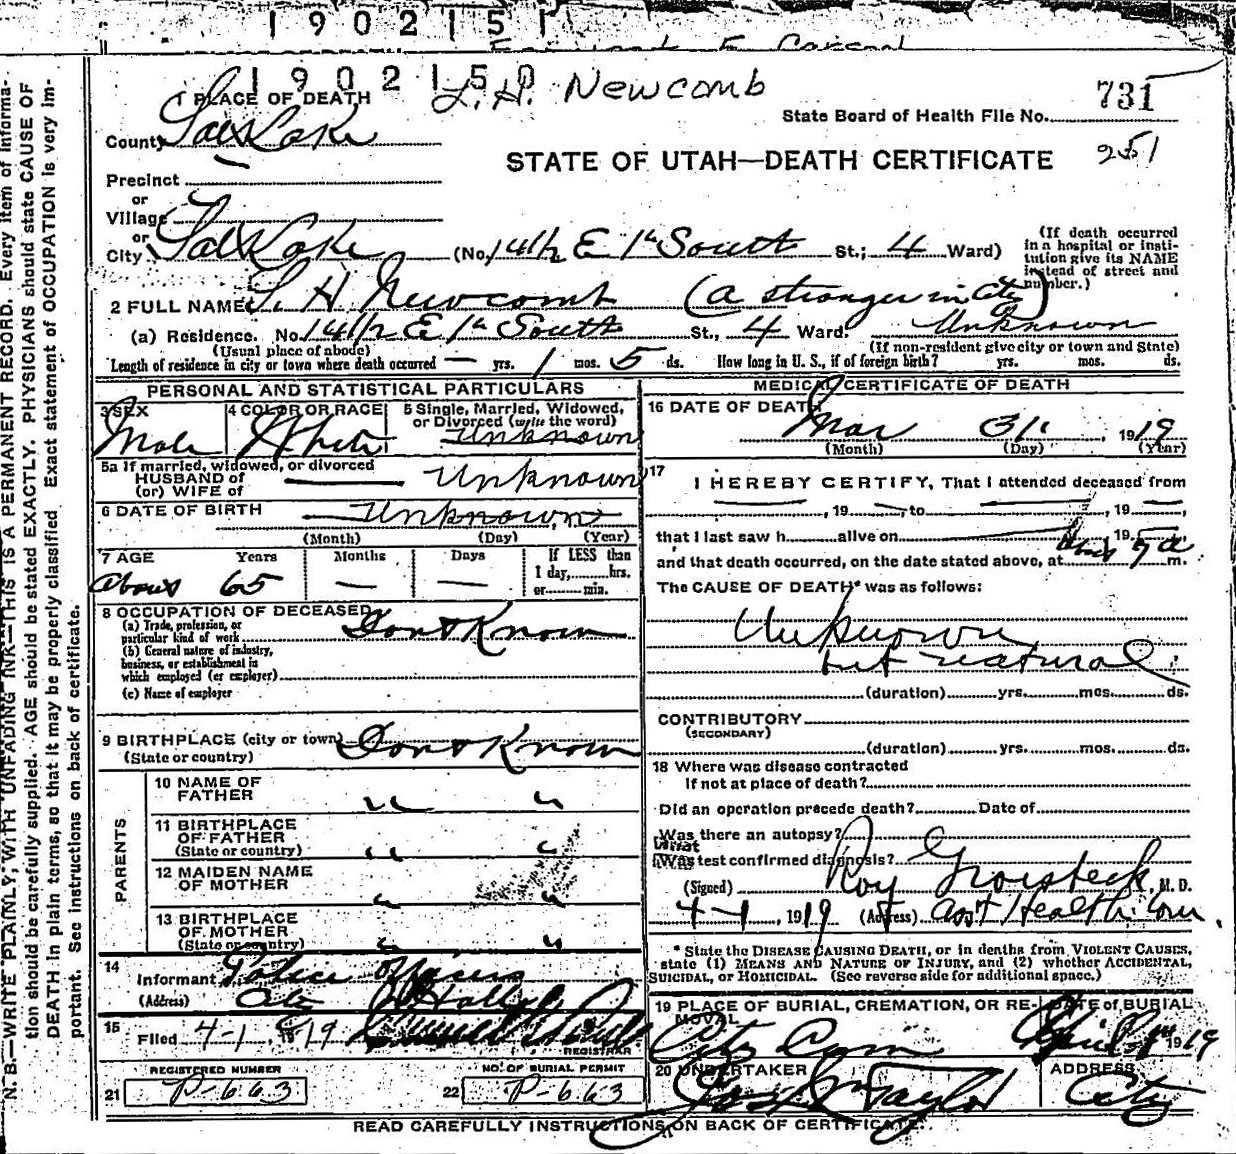 1902151
1902150
L. H. Newcomb
731
1 PLACE OF DEATH
State Board of Health File No.
County Salt Lake
STATE OF UTAH—DEATH CERTIFICATE
251
Precinct
or
Village
or
City Salt Lake (No. 141½ E 1st South St.; 4 Ward)
(If death occurred in a hospital or institution give its NAME instead of street and number.)
2 FULL NAME L. H. Newcomb (a stranger in City)
(a) Residence. No. 141½ E 1st South St., 4 Ward. Unknown
(Usual place of abode) (If non-resident give city or town and State)
Length of residence in city or town where death occurred — yrs. 1 mos. 5 ds. How long in U. S., if of foreign birth? yrs. mos. ds.
PERSONAL AND STATISTICAL PARTICULARS
3 SEX
Male
4 COLOR OR RACE
White
5 Single, Married, Widowed, or Divorced (write the word)
Unknown
5a If married, widowed, or divorced
HUSBAND of
(or) WIFE of
Unknown
6 DATE OF BIRTH Unknown
(Month) (Day) (Year)
7 AGE Years Months Days If LESS than
1 day, hrs.
or min.
About 65 — —
8 OCCUPATION OF DECEASED
(a) Trade, profession, or
particular kind of work Dont Know
(b) General nature of industry,
business, or establishment in
which employed (or employer)
(c) Name of employer
9 BIRTHPLACE (city or town) Dont Know
(State or country)
PARENTS
10 NAME OF
FATHER " "
11 BIRTHPLACE
OF FATHER
(State or country) " "
12 MAIDEN NAME
OF MOTHER " "
13 BIRTHPLACE
OF MOTHER
(State or country) " "
14
Informant Police Officers
(Address)
15
Filed 4-1, 1919
REGISTRAR
REGISTERED NUMBER
21 P-663
NO. OF BURIAL PERMIT
22 P-663
MEDICAL CERTIFICATE OF DEATH
16 DATE OF DEATH
Mar 31, 1919
(Month) (Day) (Year)
17
I HEREBY CERTIFY, That I attended deceased from
, 19 to , 19 ,
that I last saw h alive on , 19
and that death occurred, on the date stated above, at about 7 a m.
The CAUSE OF DEATH* was as follows:
Unknown
but natural
(duration) yrs. mos. ds.
CONTRIBUTORY
(SECONDARY)
(duration) yrs. mos. ds.
18 Where was disease contracted
If not at place of death?
Did an operation precede death? Date of
Was there an autopsy?
What test confirmed diagnosis?
(Signed) Roy M. D.
4-1, 1919 (Address) Ass't Health Com
* State the DISEASE CAUSING DEATH, or in deaths from VIOLENT CAUSES,
state (1) MEANS AND NATURE OF INJURY, and (2) whether ACCIDENTAL,
SUICIDAL, or HOMICIDAL. (See reverse side for additional space.)
19 PLACE OF BURIAL, CREMATION, OR REMOVAL
City Cem
DATE of BURIAL
April 1919
20 UNDERTAKER
Taylor
ADDRESS
City
READ CAREFULLY INSTRUCTIONS ON BACK OF CERTIFICATE.
N. B.—WRITE PLAINLY, WITH UNFADING INK—THIS IS A PERMANENT RECORD. Every item of informa-
tion should be carefully supplied. AGE should be stated EXACTLY. PHYSICIANS should state CAUSE OF
DEATH in plain terms, so that it may be properly classified. Exact statement of OCCUPATION is very im-
portant. See instructions on back of certificate.